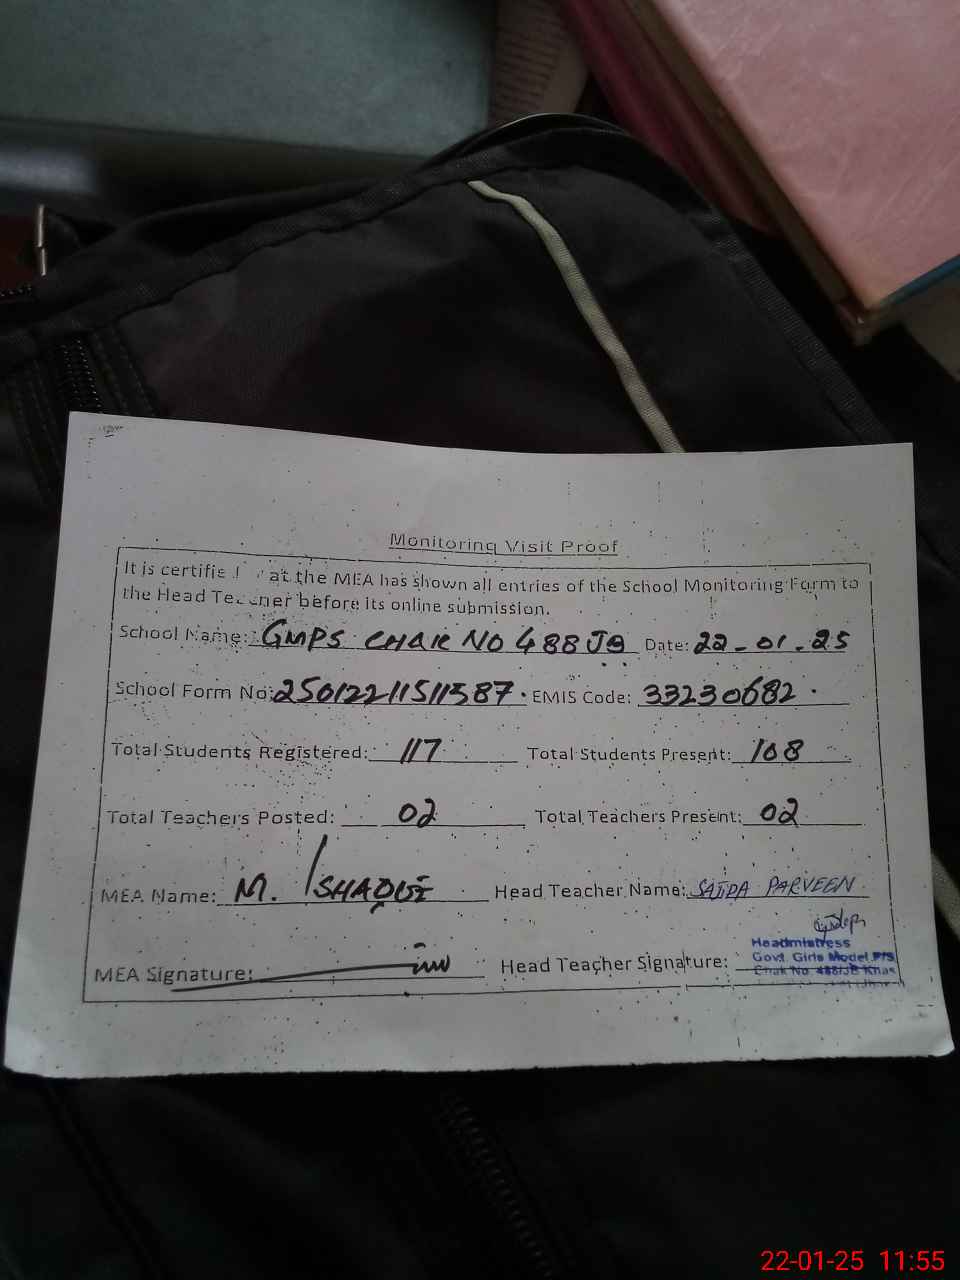 Monitoring Visit Proof
It is certified that the MEA has shown all entries of the School Monitoring Form to
the Head Teacher before its online submission.
School Name: GMPS CHAK NO 488 JB Date: 22-01-25
School Form No: 25012211511587. EMIS Code: 33230682.
Total Students Registered: 117 Total Students Present: 108
Total Teachers Posted: 02 Total Teachers Present: 02
MEA Name: M. ISHAQUE Head Teacher Name: SAJIDA PARVEEN
MEA Signature: Head Teacher Signature:
Headmistress
Govt. Girls Model P/S
Chak No. 488/JB Khas
22-01-25 11:55